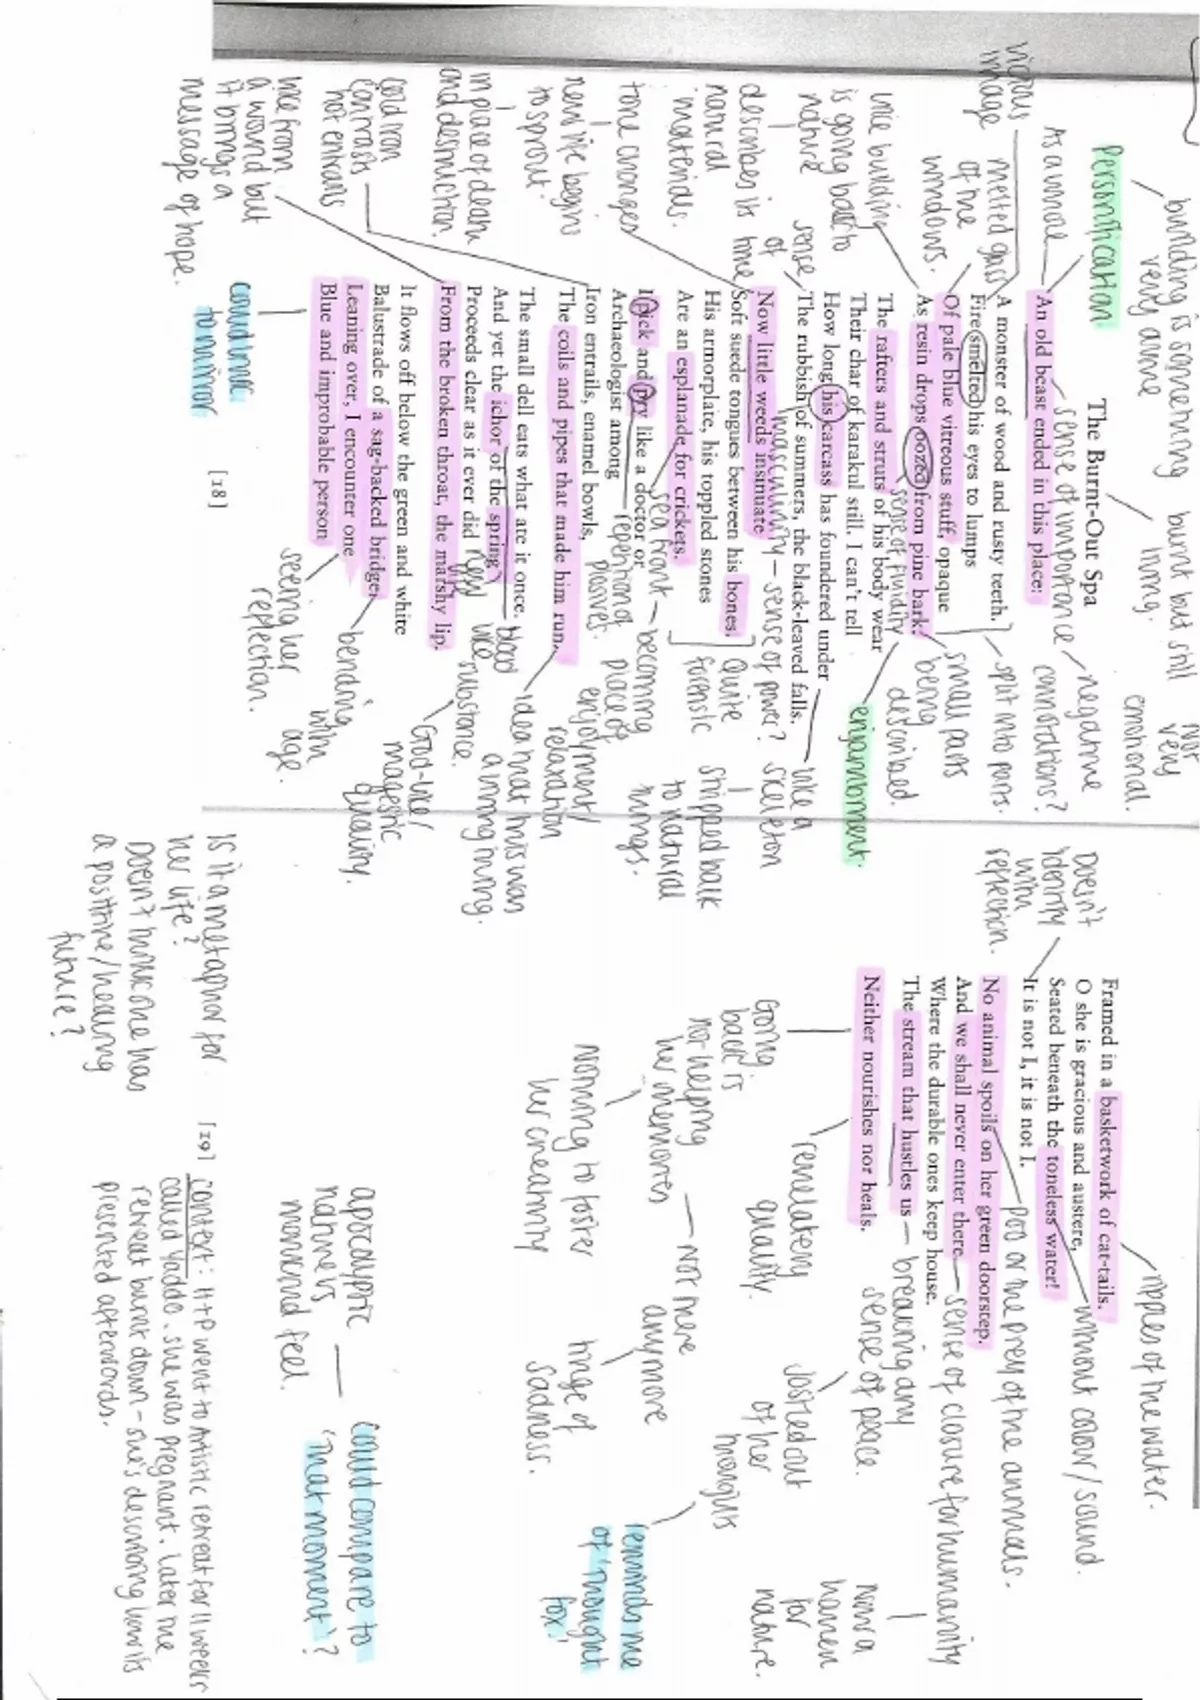 building is something very alive
burnt but still living.
Not very emotional.
Personification
The Burnt-Out Spa
As a whole
sense of importance
negative connotations?
An old beast ended in this place:
vicious image
A monster of wood and rusty teeth.
split into parts.
melted glass of the windows.
Fire smelted his eyes to lumps
Of pale blue vitreous stuff, opaque
As resin drops oozed from pine bark.
small parts being described.
sense of fluidity
The rafters and struts of his body wear
enjambment.
Their char of karakul still. I can't tell
like building is going back to nature
How long his carcass has foundered under
The rubbish of summers, the black-leaved falls.
like a skeleton
sense of time
masculinity - sense of power?
Now little weeds insinuate
describes its natural materials.
Soft suede tongues between his bones.
His armorplate, his toppled stones
Quite forensic
stripped back to natural things.
Are an esplanade for crickets.
sea front - becoming place of enjoyment/relaxation
tone changes
new life begins to sprout.
I pick and pry like a doctor or
Archaeologist among
repetition of plosives.
Iron entrails, enamel bowls,
The coils and pipes that made him run.
idea that this was a living thing.
in place of death and destruction.
The small dell eats what ate it once.
And yet the ichor of the spring
blood like substance.
God-like/magestic quality.
Proceeds clear as it ever did
new life
From the broken throat, the marshy lip.
cold iron contrasts hot entrails
It flows off below the green and white
Balustrade of a sag-backed bridge.
bending with age.
like from a wound but it brings a message of hope.
Leaning over, I encounter one
Blue and improbable person
seeing her reflection.
could link to mirror
[18]
Framed in a basketwork of cat-tails.
ripples of the water.
O she is gracious and austere,
Seated beneath the toneless water!
without colour/sound.
Doesn't identify with reflection.
It is not I, it is not I.
No animal spoils on her green doorstep.
poo or the prey of the animals.
And we shall never enter there
sense of closure for humanity
Now a haven for nature.
Where the durable ones keep house.
The stream that hustles us
breaking any sense of peace.
Neither nourishes nor heals.
Going back is not helping her memories
remedial quality.
Jostled out of her thoughts
reminds me of 'thought fox'
not here anymore
nothing to foster her creativity
tinge of sadness.
apocalyptic
nature's moved in feel.
could compare to 'that moment'?
Is it a metaphor for her life?
Doesn't think one has a positive/healing future?
[19]
context: H+P went to Artistic retreat for 11 weeks
called Yaddo. she was pregnant. Later the
retreat burnt down - she's describing how its
presented afterwords.